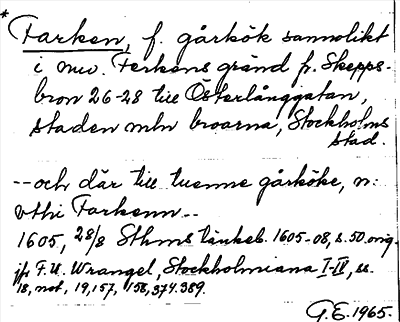 * Farken, f. gårkök sannolikt
i nuv. Ferkens gränd fr. Skepps-
bron 26-28 till Österlånggatan,
staden mln broarna, Stockholms
stad.
--och där till tuenne gårköke, n:
vthi Farkenn--
1605, 28/8 Sthms tänkeb. 1605-08, s. 50 orig.
jfr F.U. Wrangel, Stockholmiana I-IV, ss.
18, not, 19, 157, 158, 374. 389.
G.E. 1965.